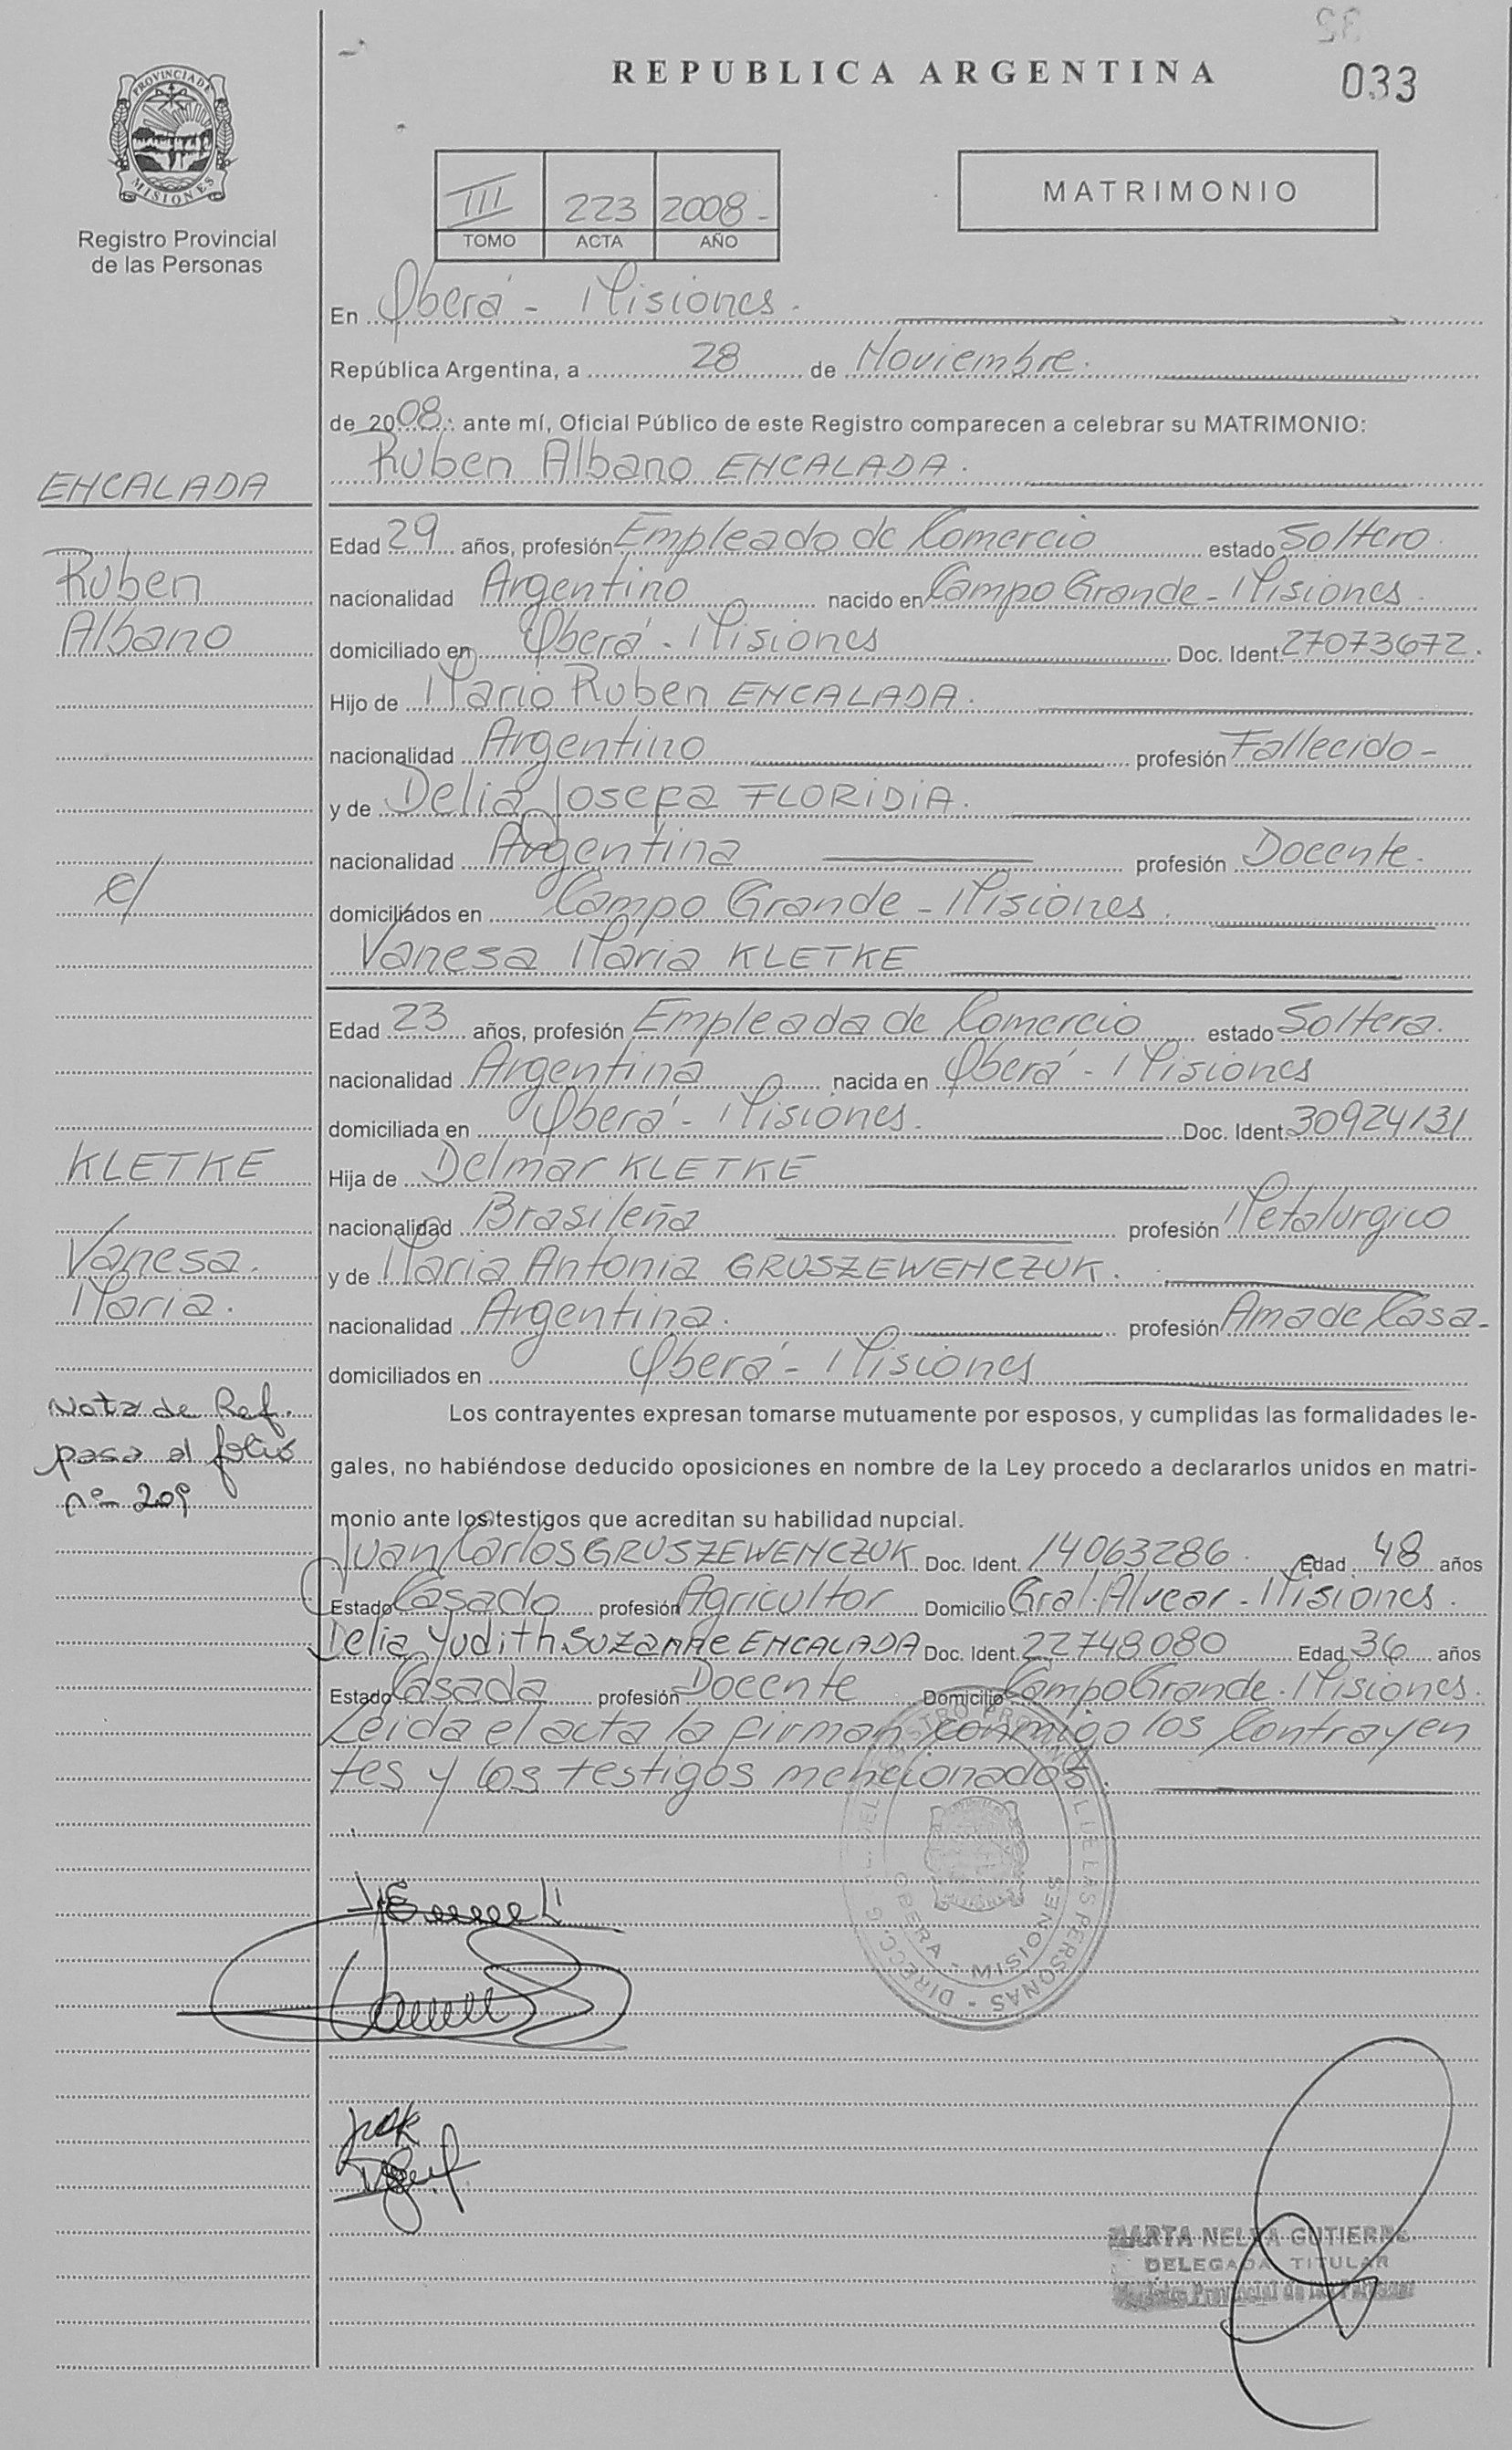 REPUBLICA ARGENTINA
033
PROVINCIA DE MISIONES
Registro Provincial
de las Personas
III 223 2008-
TOMO ACTA AÑO
MATRIMONIO
En Oberá - Misiones.
República Argentina, a 28 de Noviembre.
de 2008. ante mí, Oficial Público de este Registro comparecen a celebrar su MATRIMONIO:
Ruben Albano ENCALADA.
ENCALADA
Ruben
Albano
c/
KLETKE
Vanesa.
Maria.
Nota de Ref.
pasa al folio
nº 209
Edad 29 años, profesión Empleado de Comercio estado Soltero.
nacionalidad Argentino nacido en Campo Grande - Misiones.
domiciliado en Oberá - Misiones Doc. Ident. 27073672.
Hijo de Mario Ruben ENCALADA.
nacionalidad Argentino profesión Fallecido -
y de Delia Josefa FLORIDIA.
nacionalidad Argentina profesión Docente.
domiciliados en Campo Grande - Misiones.
Vanesa Maria KLETKE
Edad 23 años, profesión Empleada de Comercio estado Soltera.
nacionalidad Argentina nacida en Oberá - Misiones
domiciliada en Oberá - Misiones. Doc. Ident. 30924131
Hija de Delmar KLETKE
nacionalidad Brasileña profesión Metalurgico
y de Maria Antonia GRUSZEWENCZUK.
nacionalidad Argentina. profesión Ama de Casa-
domiciliados en Oberá - Misiones
Los contrayentes expresan tomarse mutuamente por esposos, y cumplidas las formalidades le-
gales, no habiéndose deducido oposiciones en nombre de la Ley procedo a declararlos unidos en matri-
monio ante los testigos que acreditan su habilidad nupcial.
Juan Carlos GRUSZEWENCZUK Doc. Ident. 14063286. Edad 48 años
Estado Casado profesión Agricultor Domicilio Gral. Alvear - Misiones.
Delia Yudith Suzanne ENCALADA Doc. Ident. 22748080 Edad 36 años
Estado Casada profesión Docente Domicilio Campo Grande - Misiones.
Leida el acta la firman conmigo los Contrayen
tes y los testigos mencionados.
OBERA - MISIONES
MARTA NELDA GUTIERRE
DELEGADA TITULAR
Registro Provincial de las Personas